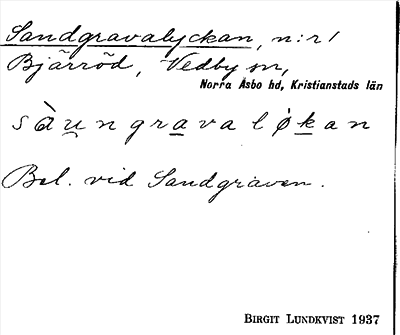 Sandgravalyckan, n:r 1
Bjärröd, Vedby sn,
Norra Åsbo hd, Kristianstads län
sàu̯ngravaløkan
Bel. vid Sandgraven.
BIRGIT LUNDKVIST 1937